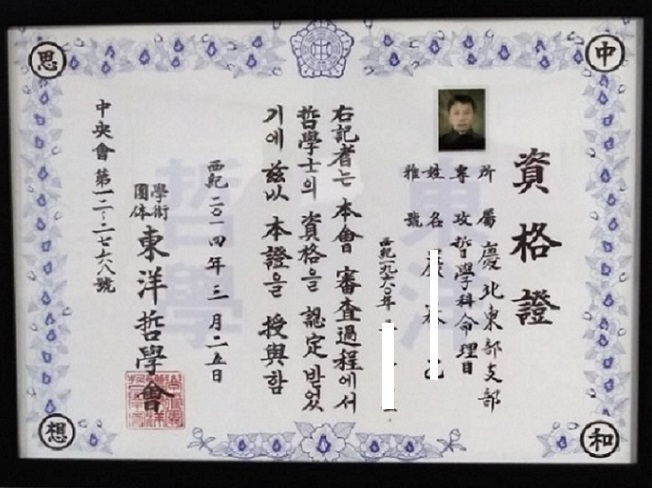 中
和
思
想
東洋
哲學
資格證
所屬 慶北東部支部
專攻 哲學科命理目
姓名
雅號
西紀一九六〇年
右記者는 本會 審査過程에서
哲學士의 資格을 認定받었
기에 玆以 本證을 授與함
西紀 二〇一四年 三月 二五日
學術
團体 東洋哲學會
中央會 第一二-二七六八號